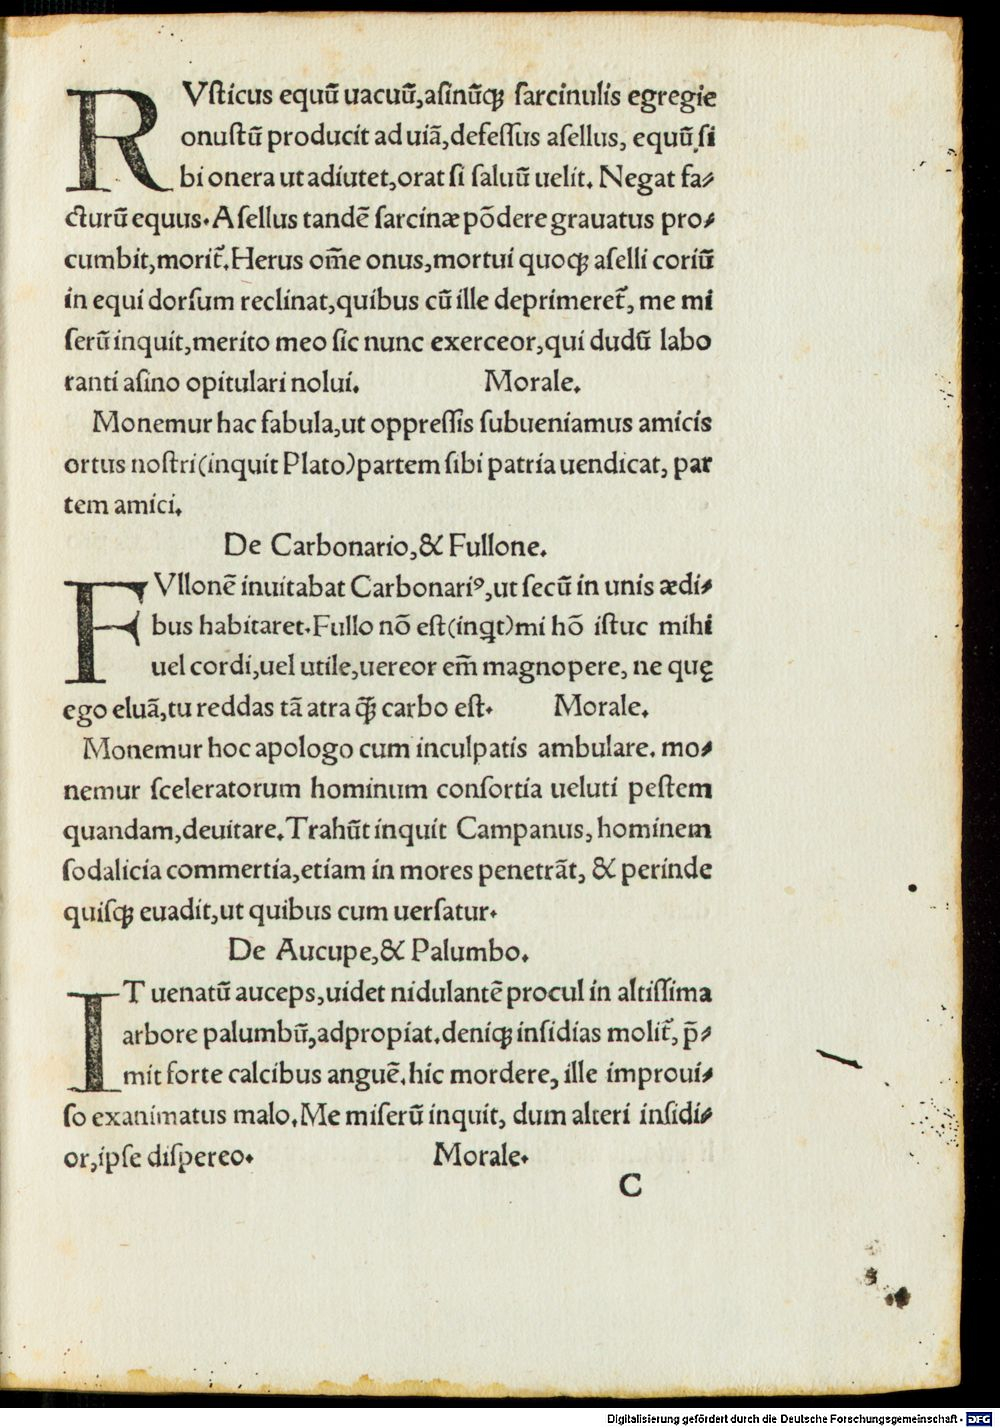 RVſticus equū uacuū,aſinūq; ſarcinulis egregie
onuſtū producit ad uiā,defeſſus aſellus, equū ſi
bi onera ut adiutet,orat ſi ſaluū uelit. Negat fa-
cturū equus. Aſellus tandē ſarcinæ pōdere grauatus pro-
cumbit,morit̃.Herus om̄e onus,mortui quoq; aſelli coriū
in equi dorſum reclinat,quibus cū ille deprimeret̃, me mi
ſerū inquit,merito meo ſic nunc exerceor,qui dudū labo
ranti aſino opitulari nolui. Morale.
Monemur hac fabula,ut oppreſſis ſubueniamus amicis
ortus noſtri(inquit Plato)partem ſibi patria uendicat, par
tem amici.
De Carbonario,& Fullone.
FVllonē inuitabat Carbonariꝰ,ut ſecū in unis ædi-
bus habitaret.Fullo nō eſt(inqt)mi hō iſtuc mihi
uel cordi,uel utile,uereor em̄ magnopere, ne quę
ego eluā,tu reddas tā atra q̄; carbo eſt. Morale.
Monemur hoc apologo cum inculpatis ambulare. mo-
nemur ſceleratorum hominum conſortia ueluti peſtem
quandam,deuitare.Trahūt inquit Campanus, hominem
ſodalicia commertia,etiam in mores penetrāt, & perinde
quiſq; euadit,ut quibus cum uerſatur.
De Aucupe,& Palumbo.
IT uenatū auceps,uidet nidulantē procul in altiſſima
arbore palumbū,adpropiat.deniq; inſidias molit̃, p̄-
mit forte calcibus anguē.hic mordere, ille improui-
ſo exanimatus malo.Me miſerū inquit, dum alteri inſidi-
or,ipſe diſpereo. Morale.
C
Digitalisierung gefördert durch die Deutsche Forschungsgemeinschaft - DFG